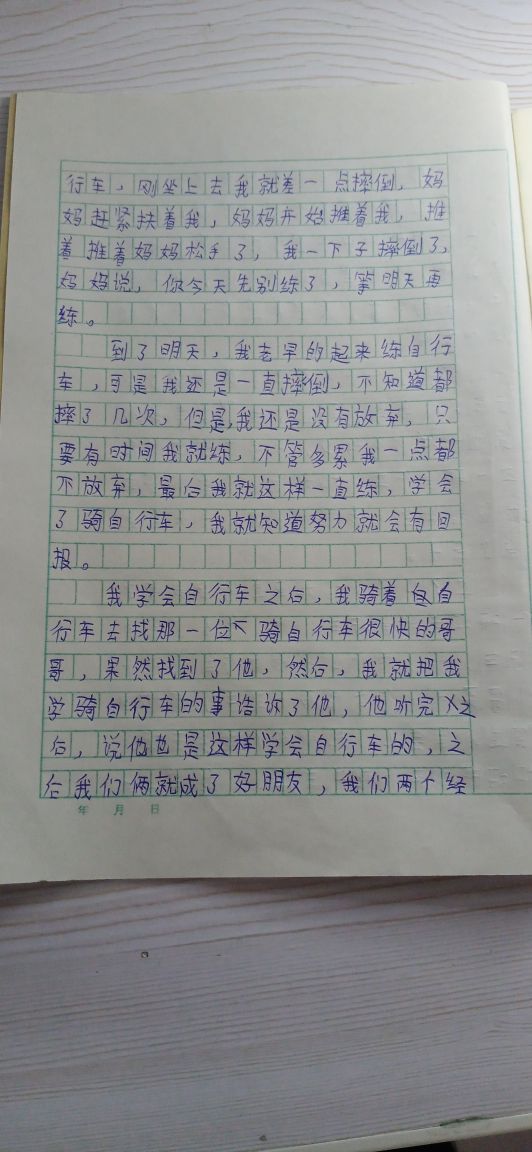 行车，刚坐上去我就差一点摔倒，妈
妈赶紧扶着我，妈妈开始推着我，推
着推着妈妈松手了，我一下子摔倒了，
妈妈说，你今天先别练了，等明天再
练。
到了明天，我老早的起来练自行
车，可是我还是一直摔倒，不知道都
摔了几次，但是，我还是没有放弃，只
要有时间我就练，不管多累我一点都
不放弃，最后我就这样一直练，学会
了骑自行车，我就知道努力就会有回
报。
我学会自行车之后，我骑着自
行车去找那一位骑自行车很快的哥
哥，果然找到了他，然后，我就把我
学骑自行车的事告诉了他，他听完之
后，说他也是这样学会自行车的，之
后我们俩就成了好朋友，我们两个经
年 月 日